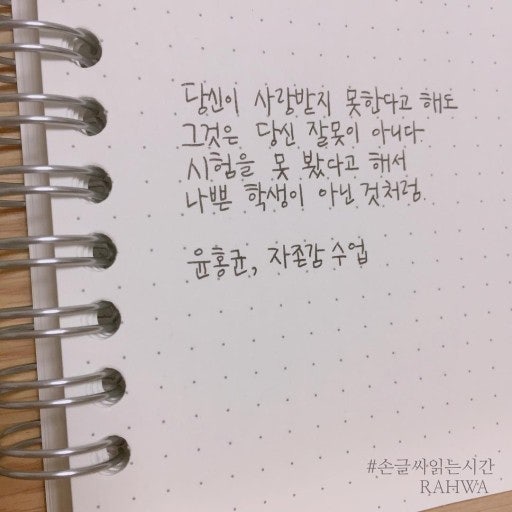 당신이 사랑받지 못한다고 해도
그것은 당신 잘못이 아니다
시험을 못 봤다고 해서
나쁜 학생이 아닌 것처럼
윤홍균, 자존감 수업
#손글싸읽는시간
RAHWA